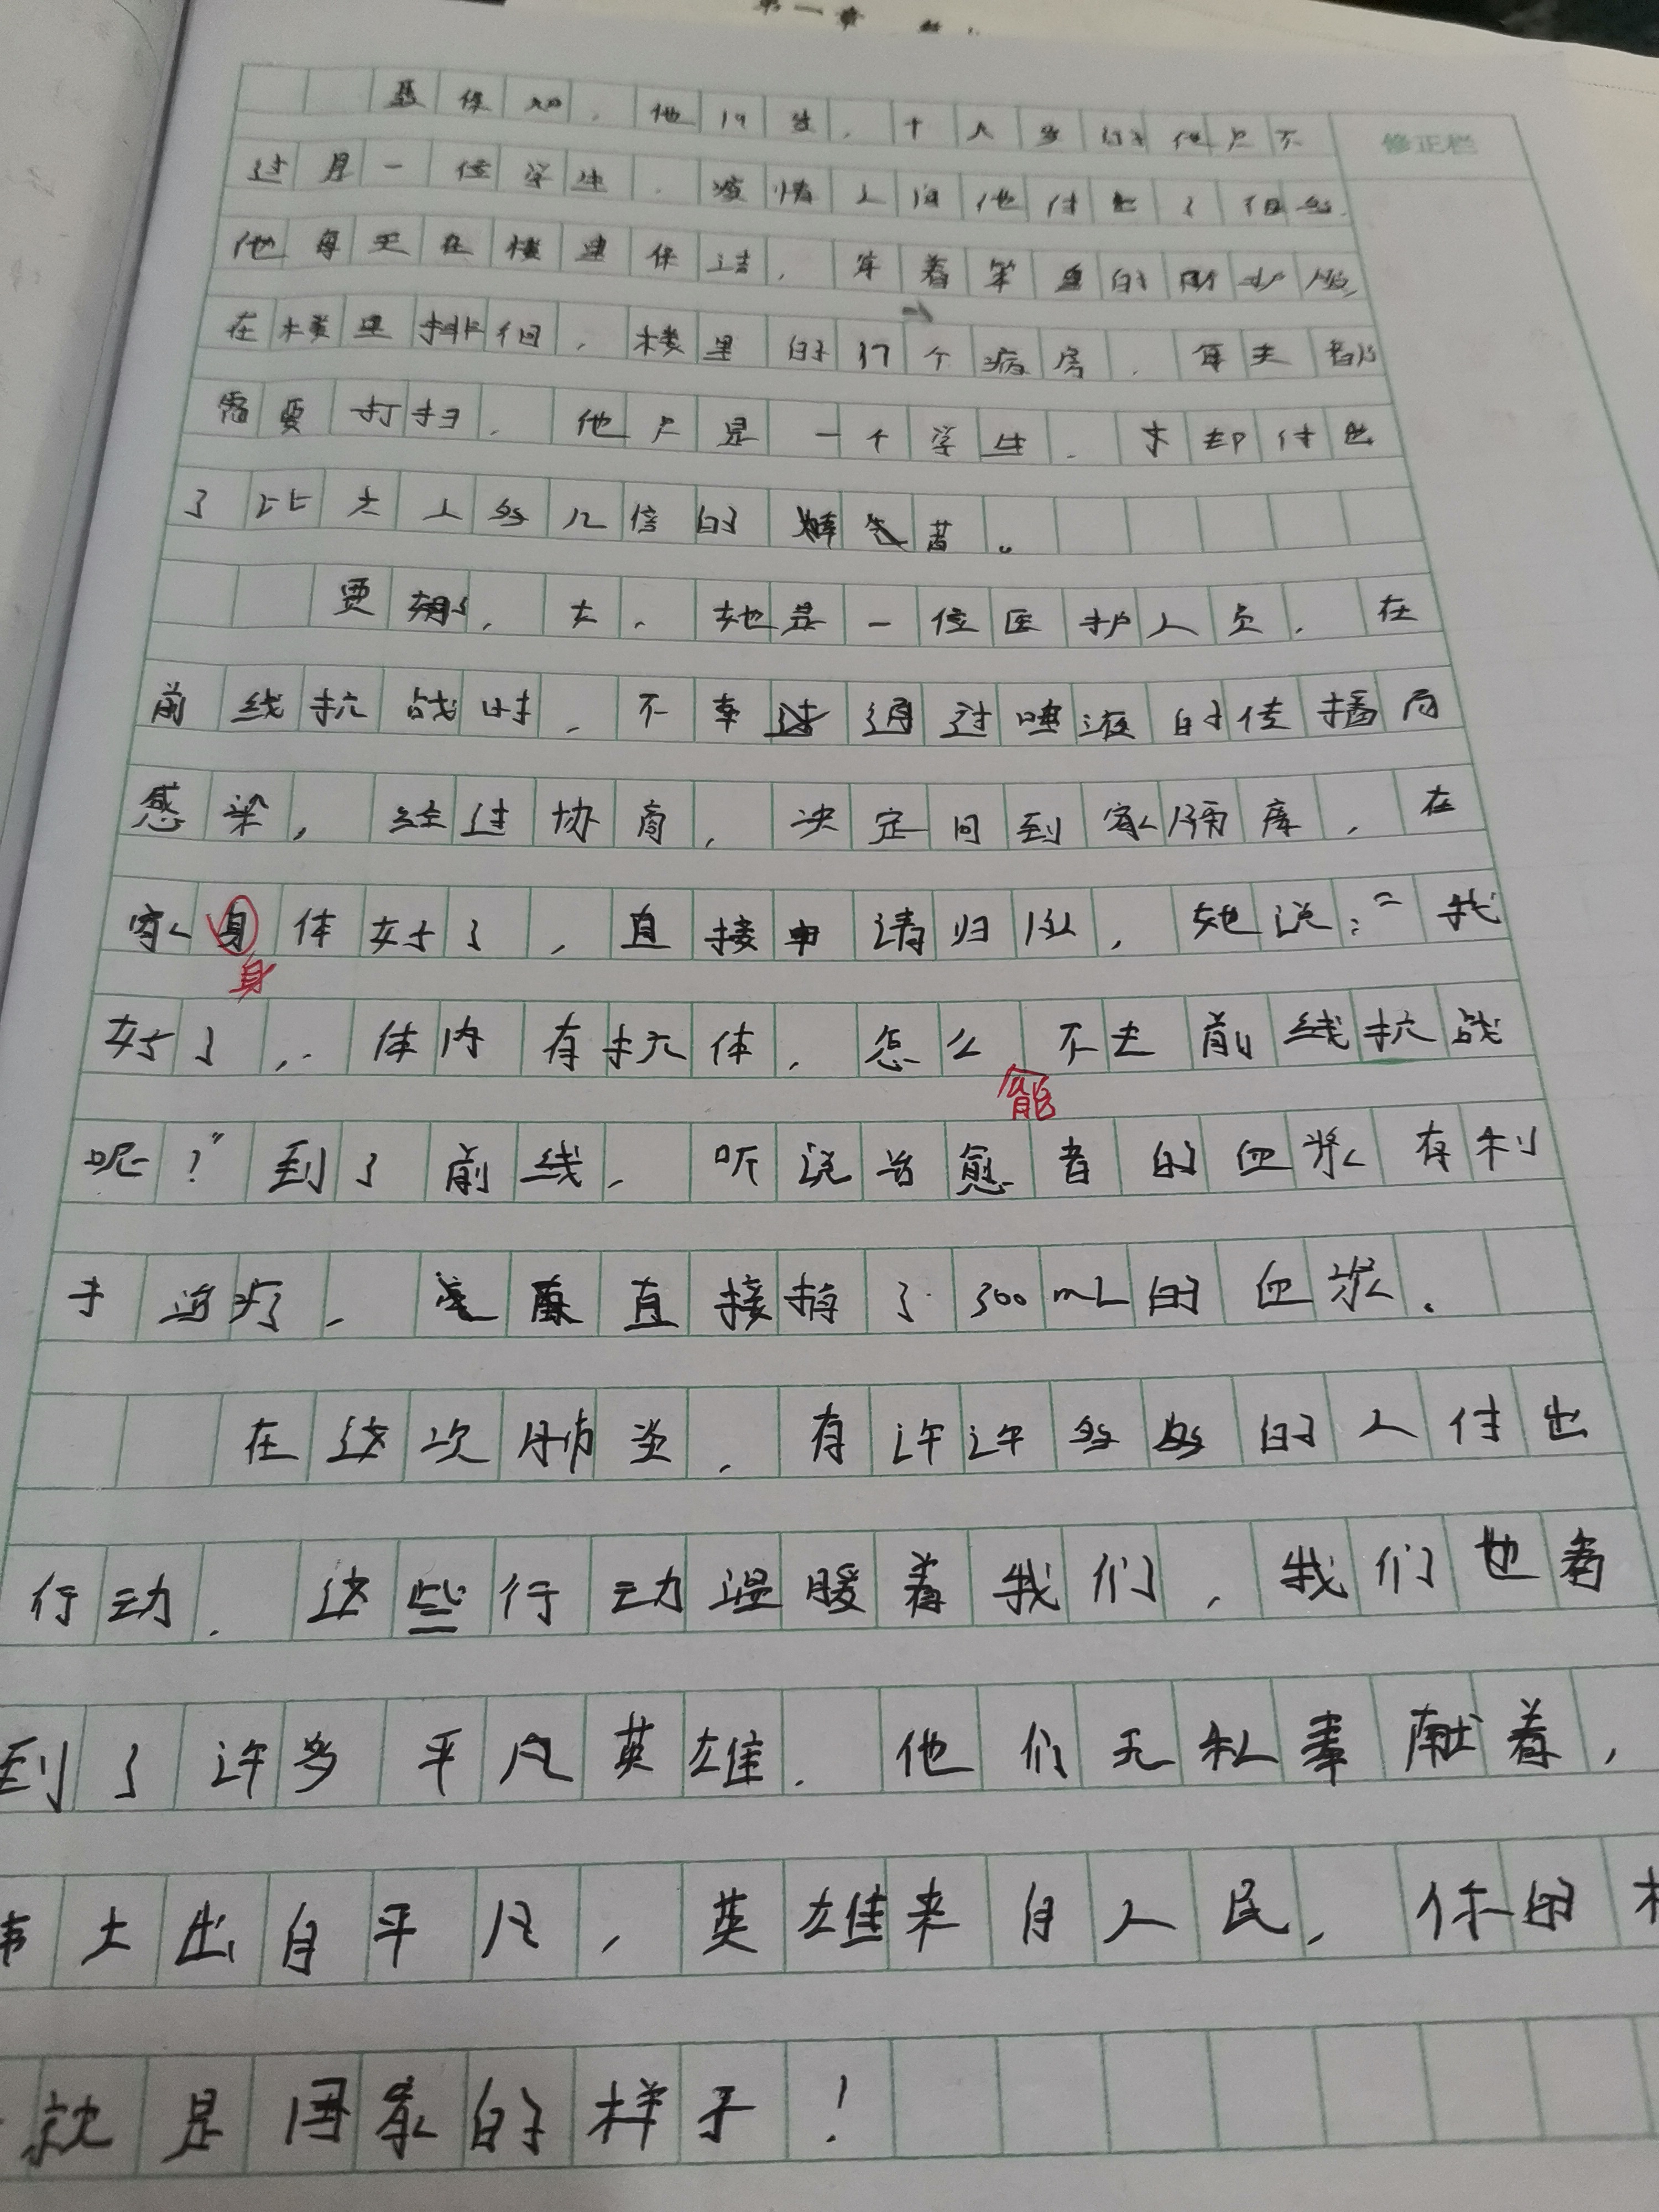 第一章
修正栏
他19岁,十八岁的他只不
过是一位学生,疫情人间他付出了很多,
他每天在楼里保洁,穿着笨重的防护服,
在楼里徘徊,楼里的37个病房,每天都
需要打扫,他只是一个学生,才却付出
了比大人多几倍的辣苦。
贾娜,女,她是一位医护人员,在
前线抗战时,不幸通过唾液的传播而
感染,经过协商,决定回到家隔离,在
家身体好了,直接申请归队,她说:“我
身
好了,体内有抗体,怎么不去前线抗战
能
呢?”到了前线,听说治愈者的血浆有利
于治疗,直接捐了300mL的血浆.
在这次肺炎,有许许多多的人付出
行动.这些行动温暖着我们,我们也看
到了许多平凡英雄.他们无私奉献着,
大出自平凡,英雄来自人民,你的
就是国家的样子!